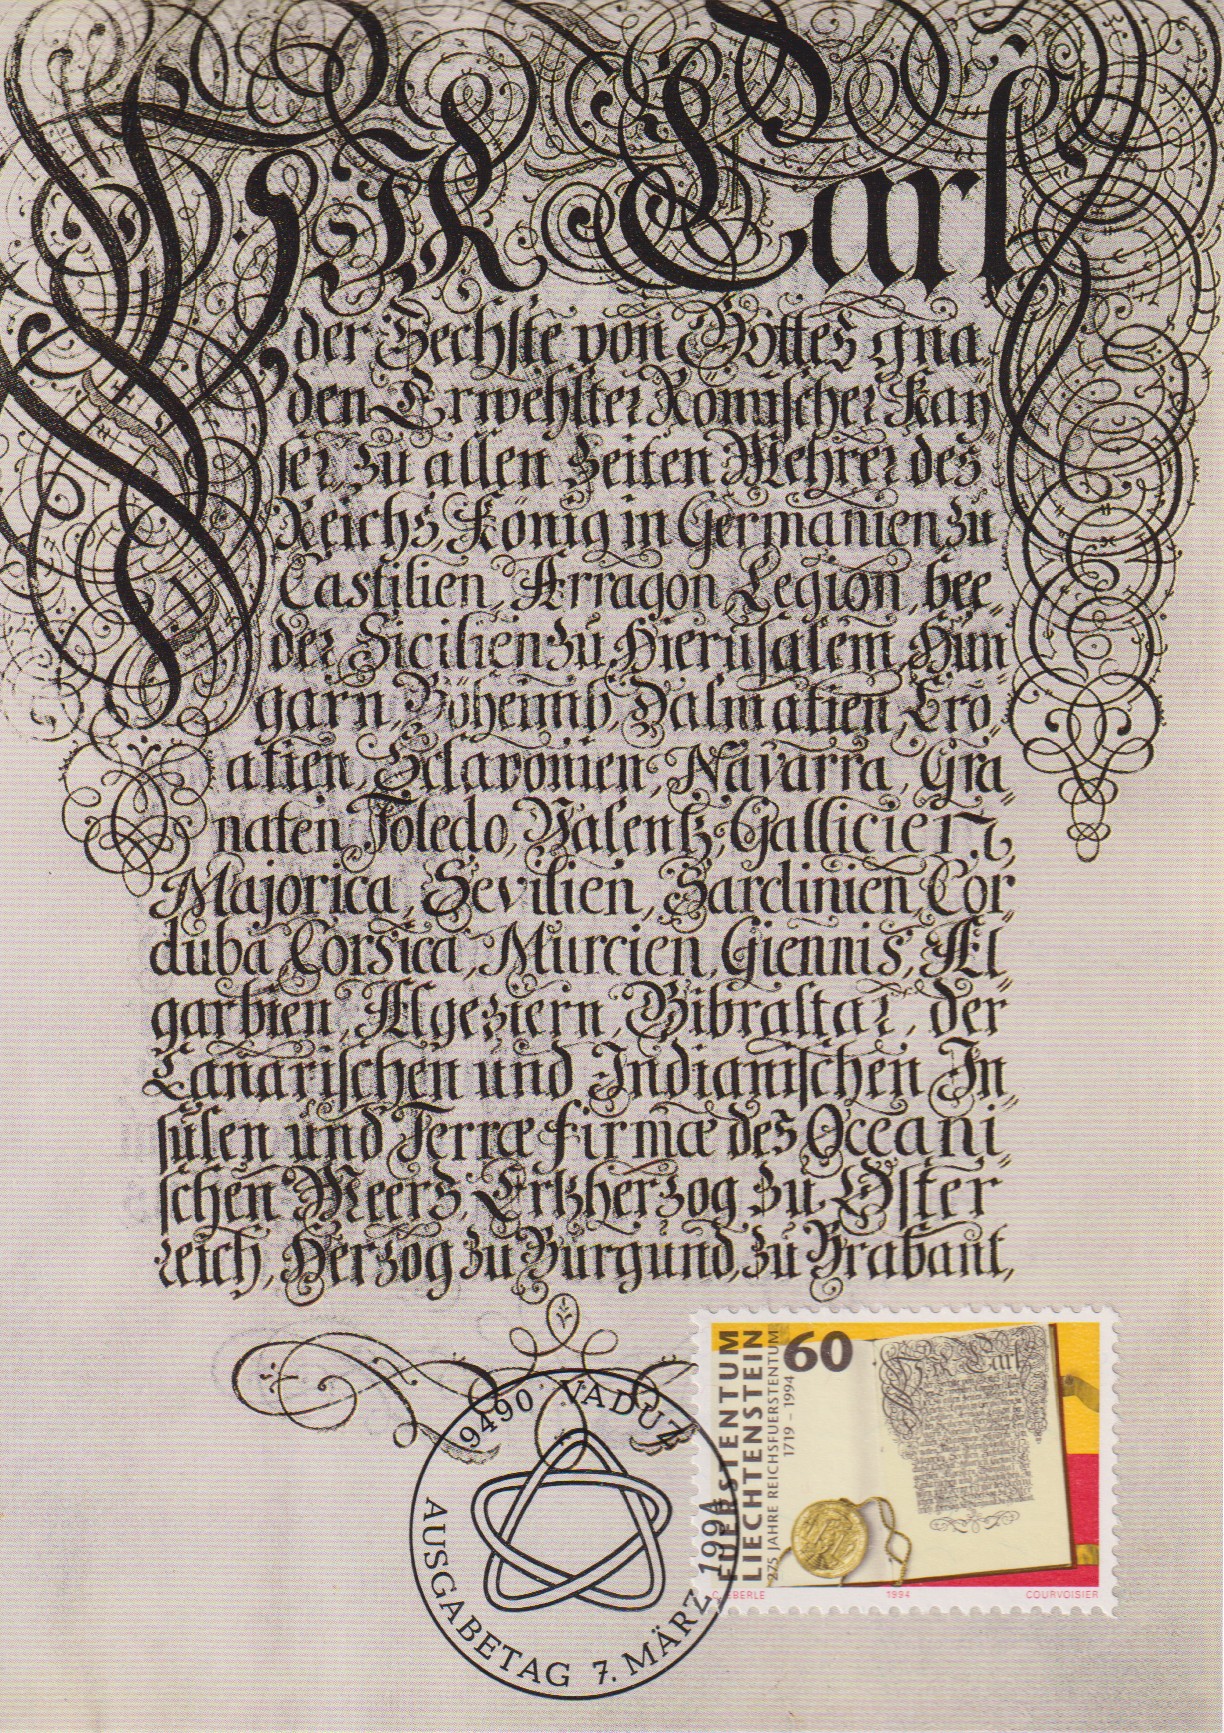 Wir Carl
der Sechste von Gottes gna
den Erwehlter Römischer Kay
ser, zu allen Zeiten Mehrer des
Reichs, König in Germanien, zu
Castilien, Arragon, Legion, bee„
der Sicilien, zu Hierusalem, Hun
garn, Böheimb, Dalmatien, Cro„
atien, Sclavonien, Navarra, Gra„
naten, Toledo, Valentz, Gallicien,
Majorica, Sevilien, Sardinien, Cor„
duba, Corsica, Murcien, Giennis, Al„
garbien, Algeziern, Gibraltar, der
Canarischen und Indianischen In„
sulen und Terræ firmæ des Oceani„
schen Meers, Ertzherzog zu Öster
reich, Herzog zu Burgund, zu Brabant,
FUERSTENTUM
LIECHTENSTEIN
275 JAHRE REICHSFUERSTENTUM
1719 – 1994
60
Carl
EBERLE 1994 COURVOISIER
9490 VADUZ
AUSGABETAG 7. MÄRZ 1994